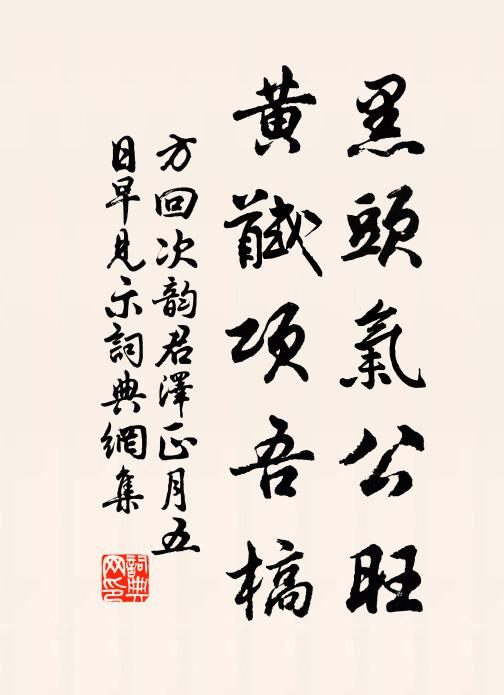 黑頭氣公旺
黄馘項吾槁
方回次韵君澤正月五
日早見示詞典網集
詞典网印